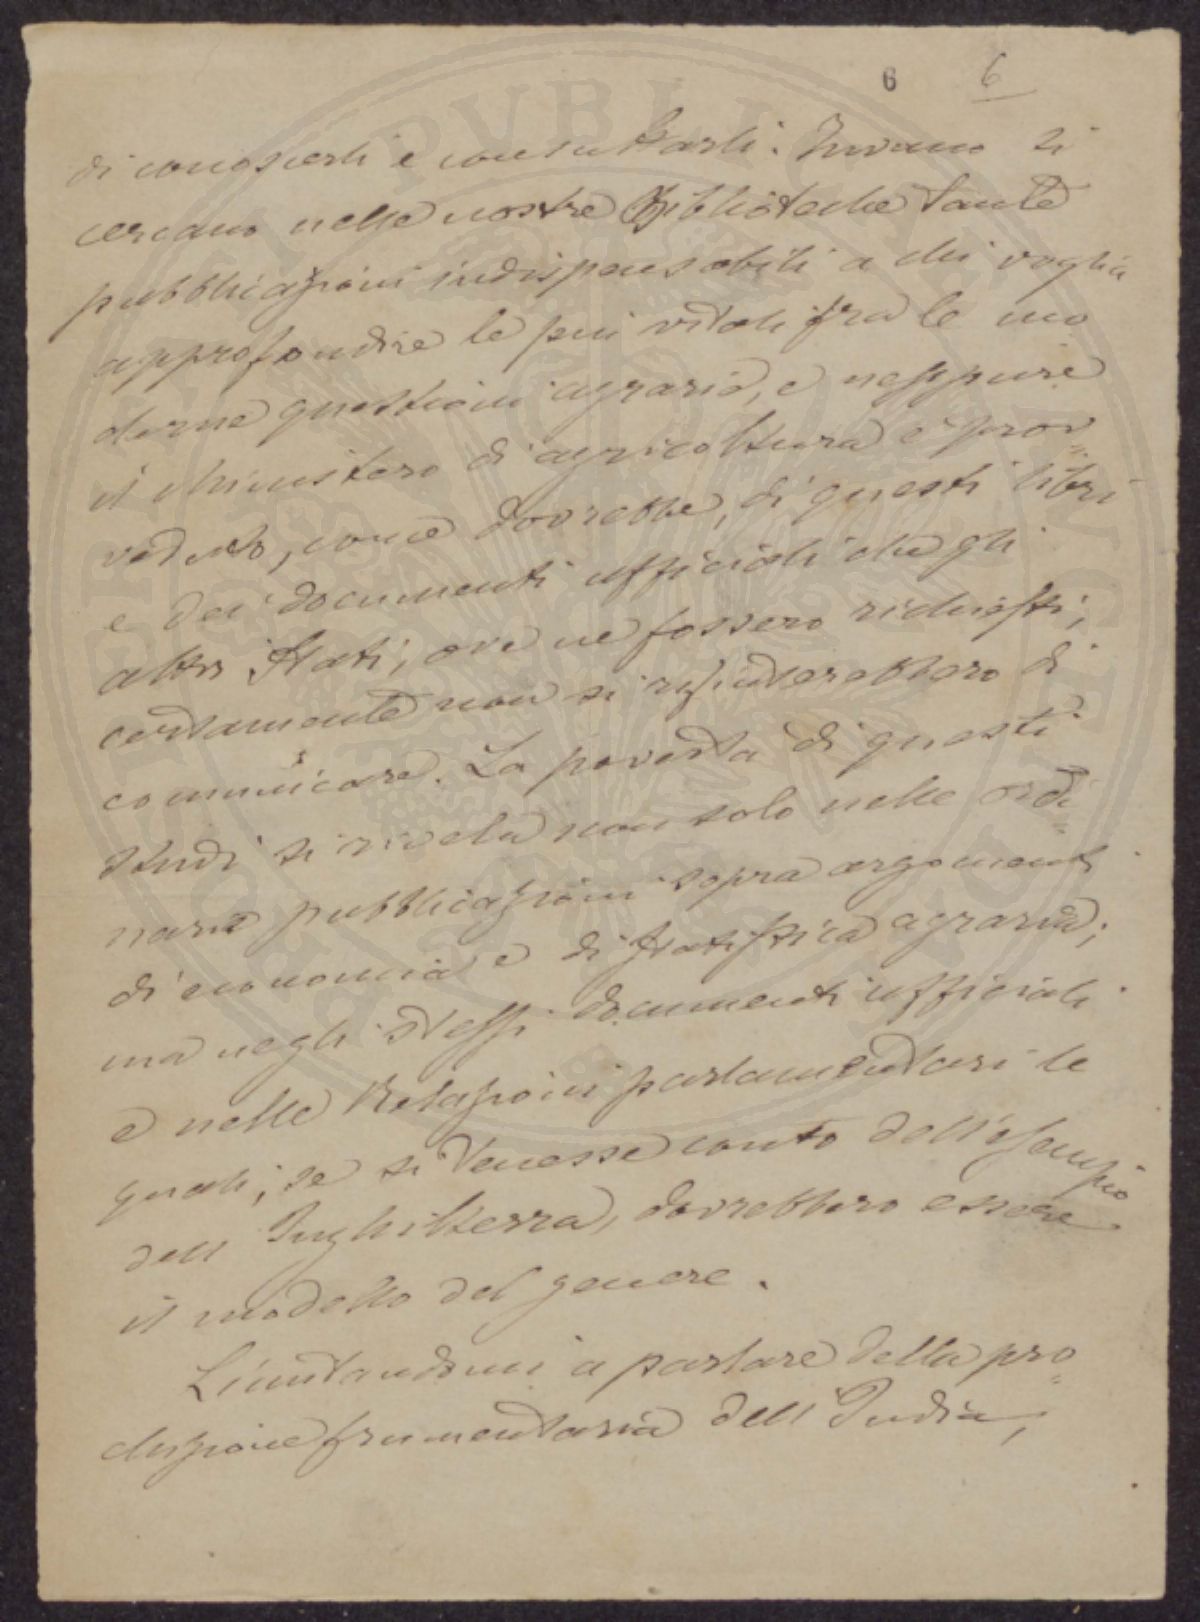 6 6
di conoscerli e consultarli. Invano si
cercano nelle nostre Biblioteche tante
pubblicazioni indispensabili a chi voglia
approfondire le più vitali fra le mo
derne questioni agrarie, e neppure
il Ministero di agricoltura è prov=
veduto, come dovrebbe, di questi libri
e dei documenti ufficiali che gli
altri Stati, ove ne fossero richiesti,
certamente non si rifiuterebbero di
comunicare. La povertà di questi
studi si rivela non solo nelle ordi=
narie pubblicazioni sopra argomenti
di economia e di statistica agraria;
ma negli stessi documenti ufficiali
e nelle Relazioni parlamentari le
quali, se si tenesse conto dell'esempio
dell'Inghilterra, dovrebbero essere
il modello del genere.
Limitandomi a parlare della pro=
duzione frumentaria dell'India,